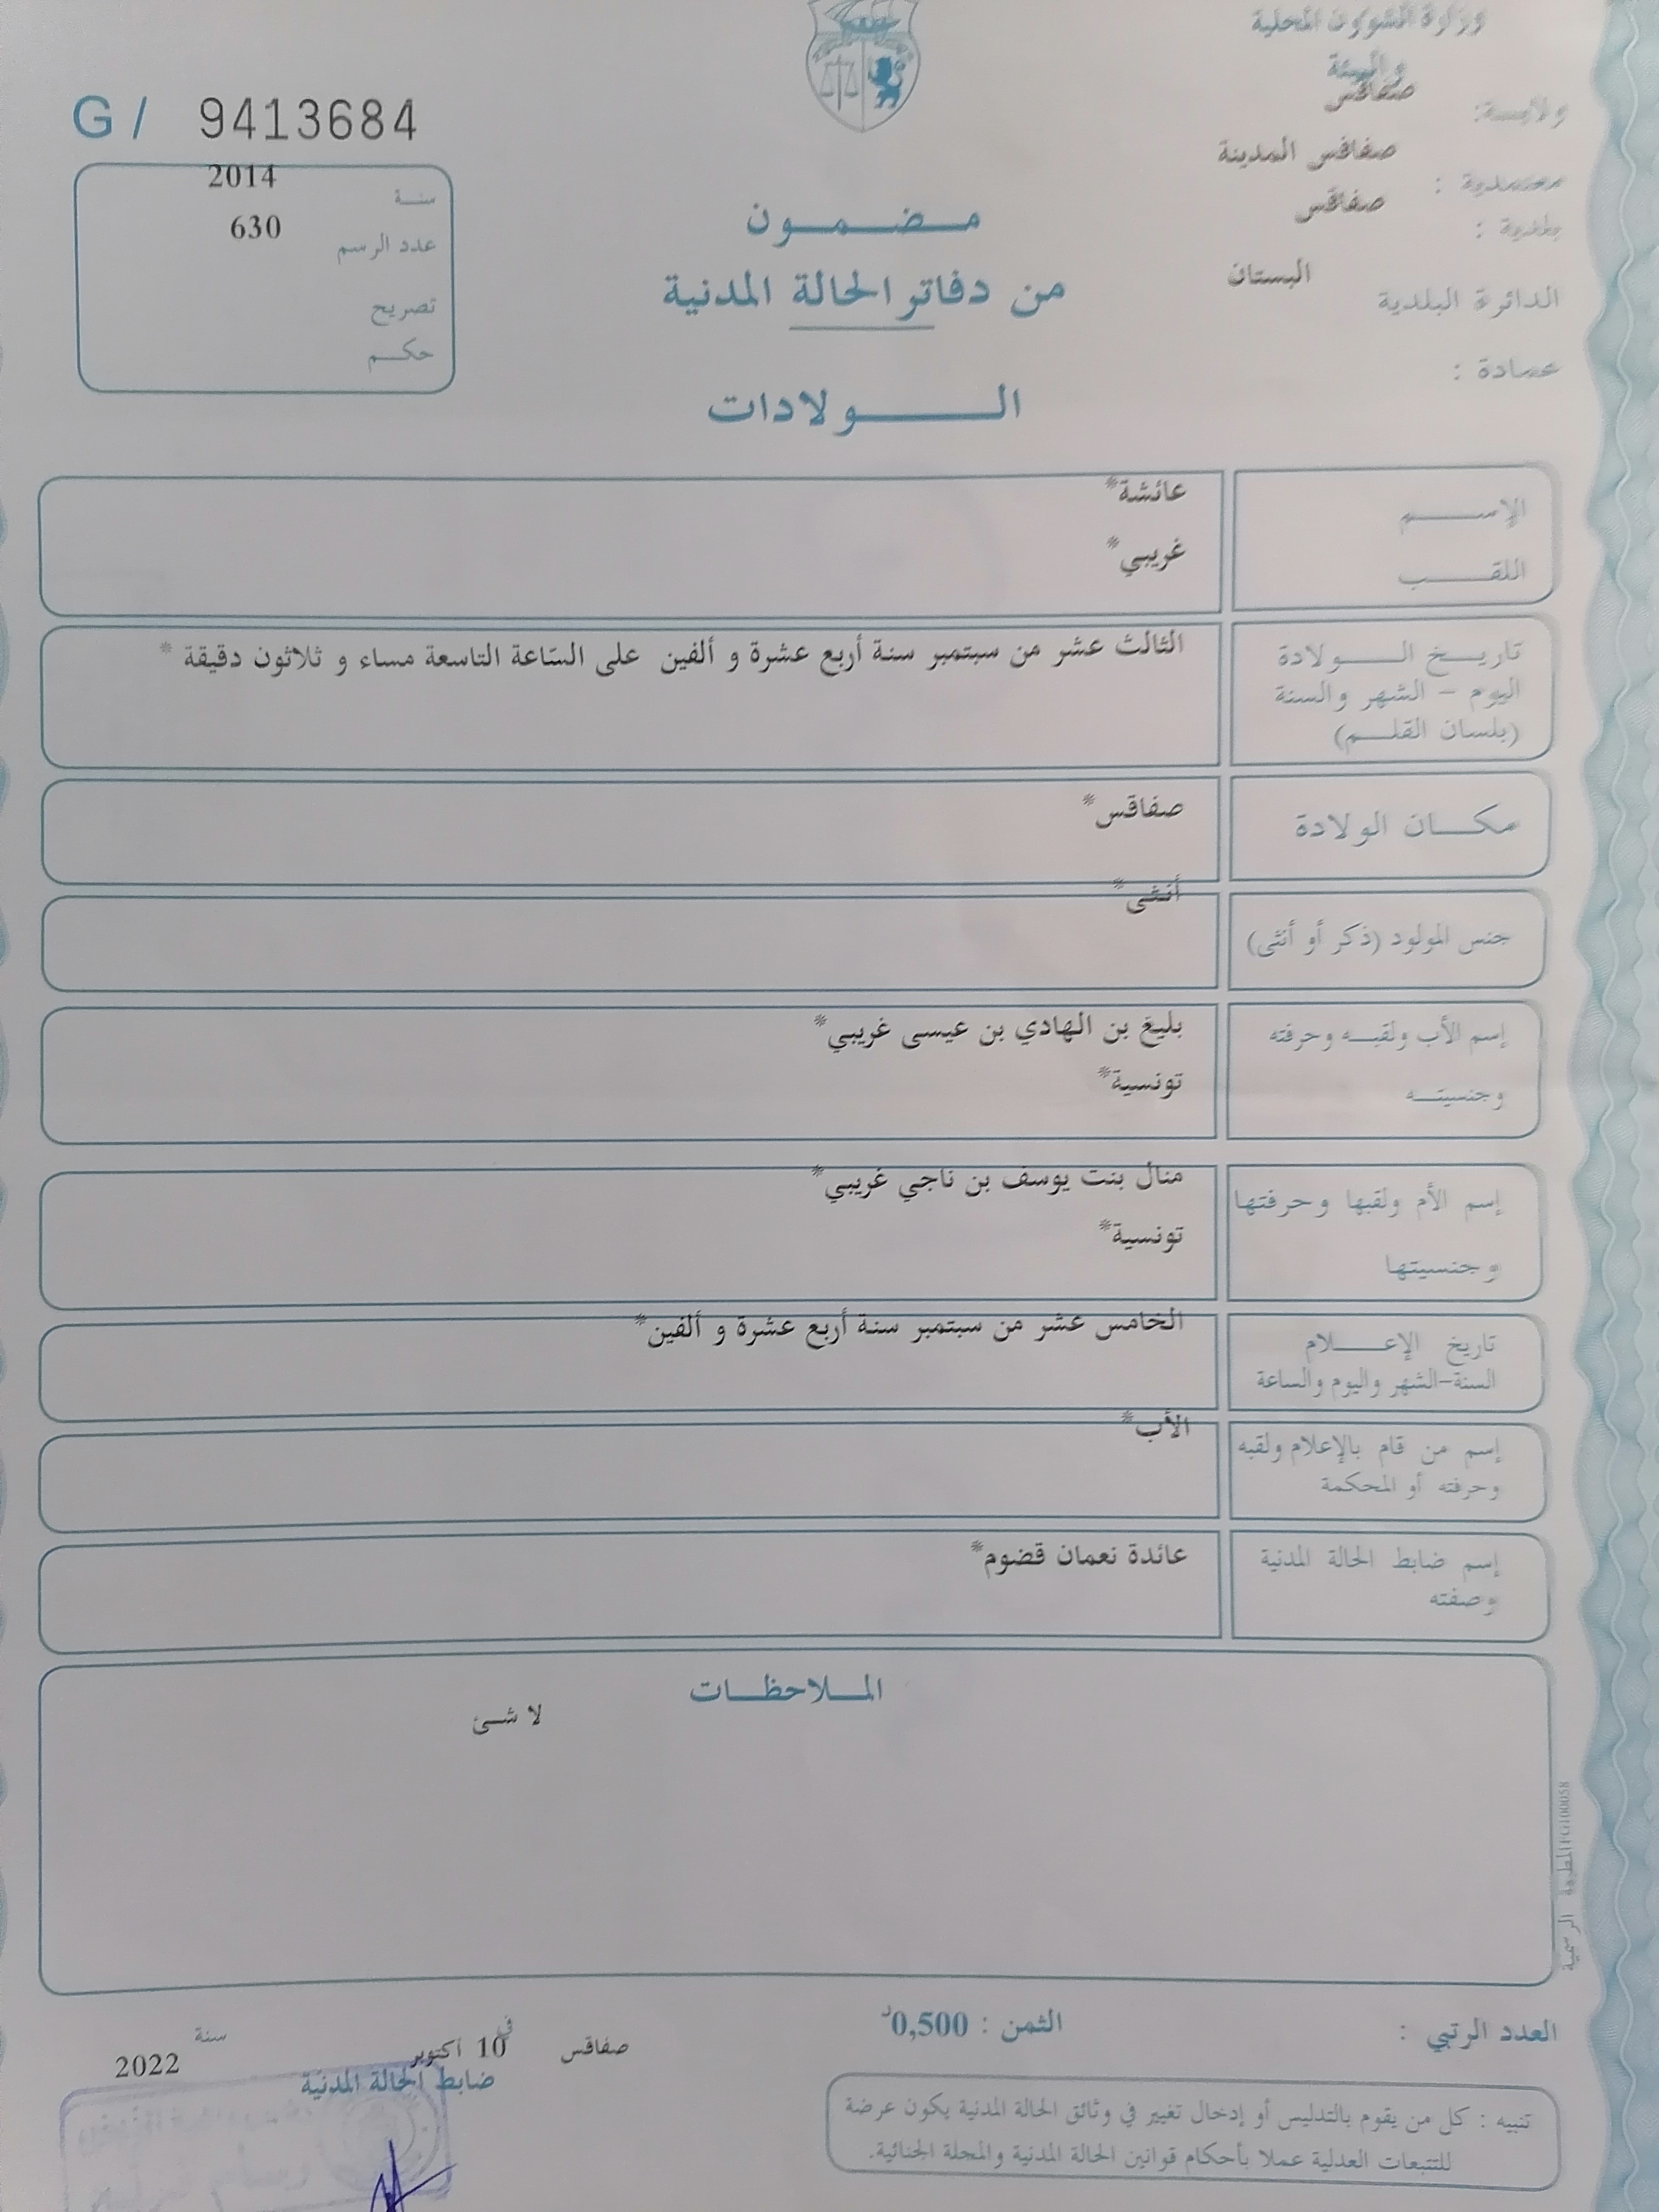 وزارة الشؤون المحلية
والبيئة
ولايـــة: صفاقس
معتمدية : صفاقس المدينة
بلدية : صفاقس
الدائرة البلدية البستان
عمادة :
مضمون
من دفاتر الحالة المدنية
الولادات
G / 9413684
سنة 2014
عدد الرسم 630
تصريح
حكم
الإسم عائشة*
اللقب غريبي*
تاريخ الولادة الثالث عشر من سبتمبر سنة أربع عشرة و ألفين على الساعة التاسعة مساء و ثلاثون دقيقة *
اليوم - الشهر والسنة
(بلسان القلم)
مكان الولادة صفاقس*
جنس المولود (ذكر أو أنثى) أنثى*
إسم الأب ولقبه وحرفته بليغ بن الهادي بن عيسى غريبي*
وجنسيته تونسية*
إسم الأم ولقبها وحرفتها منال بنت يوسف بن ناجي غريبي*
وجنسيتها تونسية*
تاريخ الإعلام الخامس عشر من سبتمبر سنة أربع عشرة و ألفين*
السنة-الشهر واليوم والساعة
إسم من قام بالإعلام ولقبه الأب*
وحرفته أو المحكمة
إسم ضابط الحالة المدنية عائدة نعمان قضوم*
وصفته
الملاحظات
لا شئ
المطبعة الرسمية
العدد الرتبي :
الثمن : 0,500د
صفاقس في 10 أكتوبر سنة 2022
ضابط الحالة المدنية
تنبيه : كل من يقوم بالتدليس أو إدخال تغيير في وثائق الحالة المدنية يكون عرضة
للتتبعات العدلية عملا بأحكام قوانين الحالة المدنية والمجلة الجنائية.